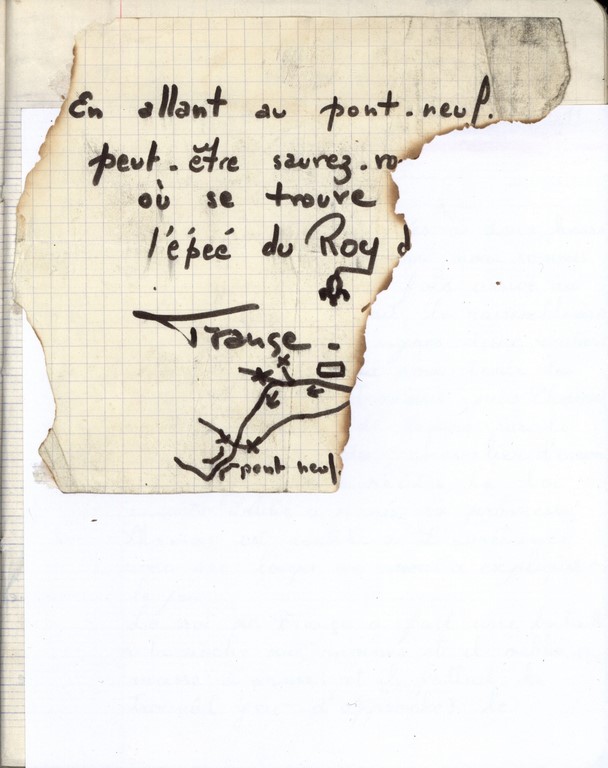 En allant au pont-neuf.
peut-être saurez-vo
où se trouve
l'épeé du Roy d
Trange -
pont neuf.